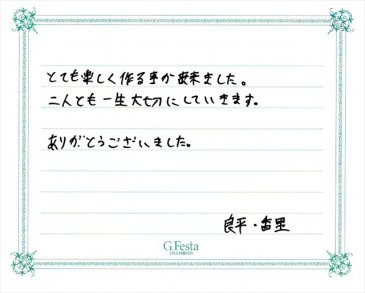 とても楽しく作る事が出来ました。
二人とも一生大切にしていきます。
ありがとうございました。
良平・香里
G.Festa
DIAMOND